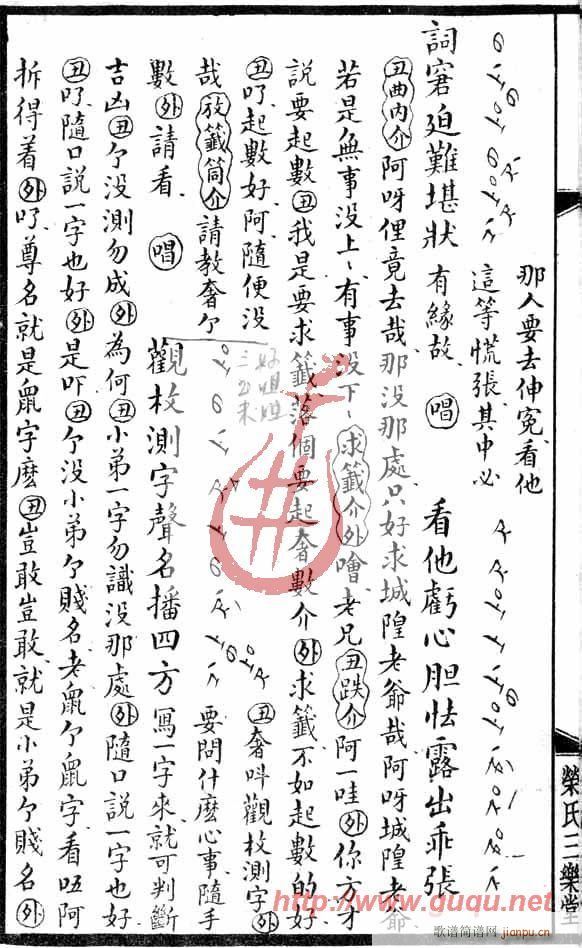 那人要去伸冤看他
這等慌張其中必
詞窘迫難堪狀 有緣故 唱 看他虧心胆怯露出乖張
丑曲内介 阿呀俚竟去哉那没那處只好求城隍老爺哉阿呀城隍老爺
若是無事没上、有事没下、求籤介 外 噲老兄 丑跌介 阿一哇 外 你方才
說要起數 丑 我是要求籤落個要起奢數介 外 求籤不如起數的好
丑 吖起數好阿隨便没 丑 奢叫觀枚測字 外
哉 放籤筒介 請教奢个
數 外 請看 唱 觀枚測字聲名播四方 寫一字來就可判斷
要問什麽心事隨手
吉凶 丑 个没測勿成 外 為何 丑 小弟一字勿識没那處 外 隨口說一字也好
丑 吖隨口說一字也好 外 是吓 丑 个没小弟个賤名老鼠个鼠字看㕶阿
拆得着 外 吖尊名就是鼠字麽 丑 豈敢豈敢就是小弟个賤名 外
榮氏三樂堂
http://www.guqu.net
歌谱简谱网
jianpu.cn